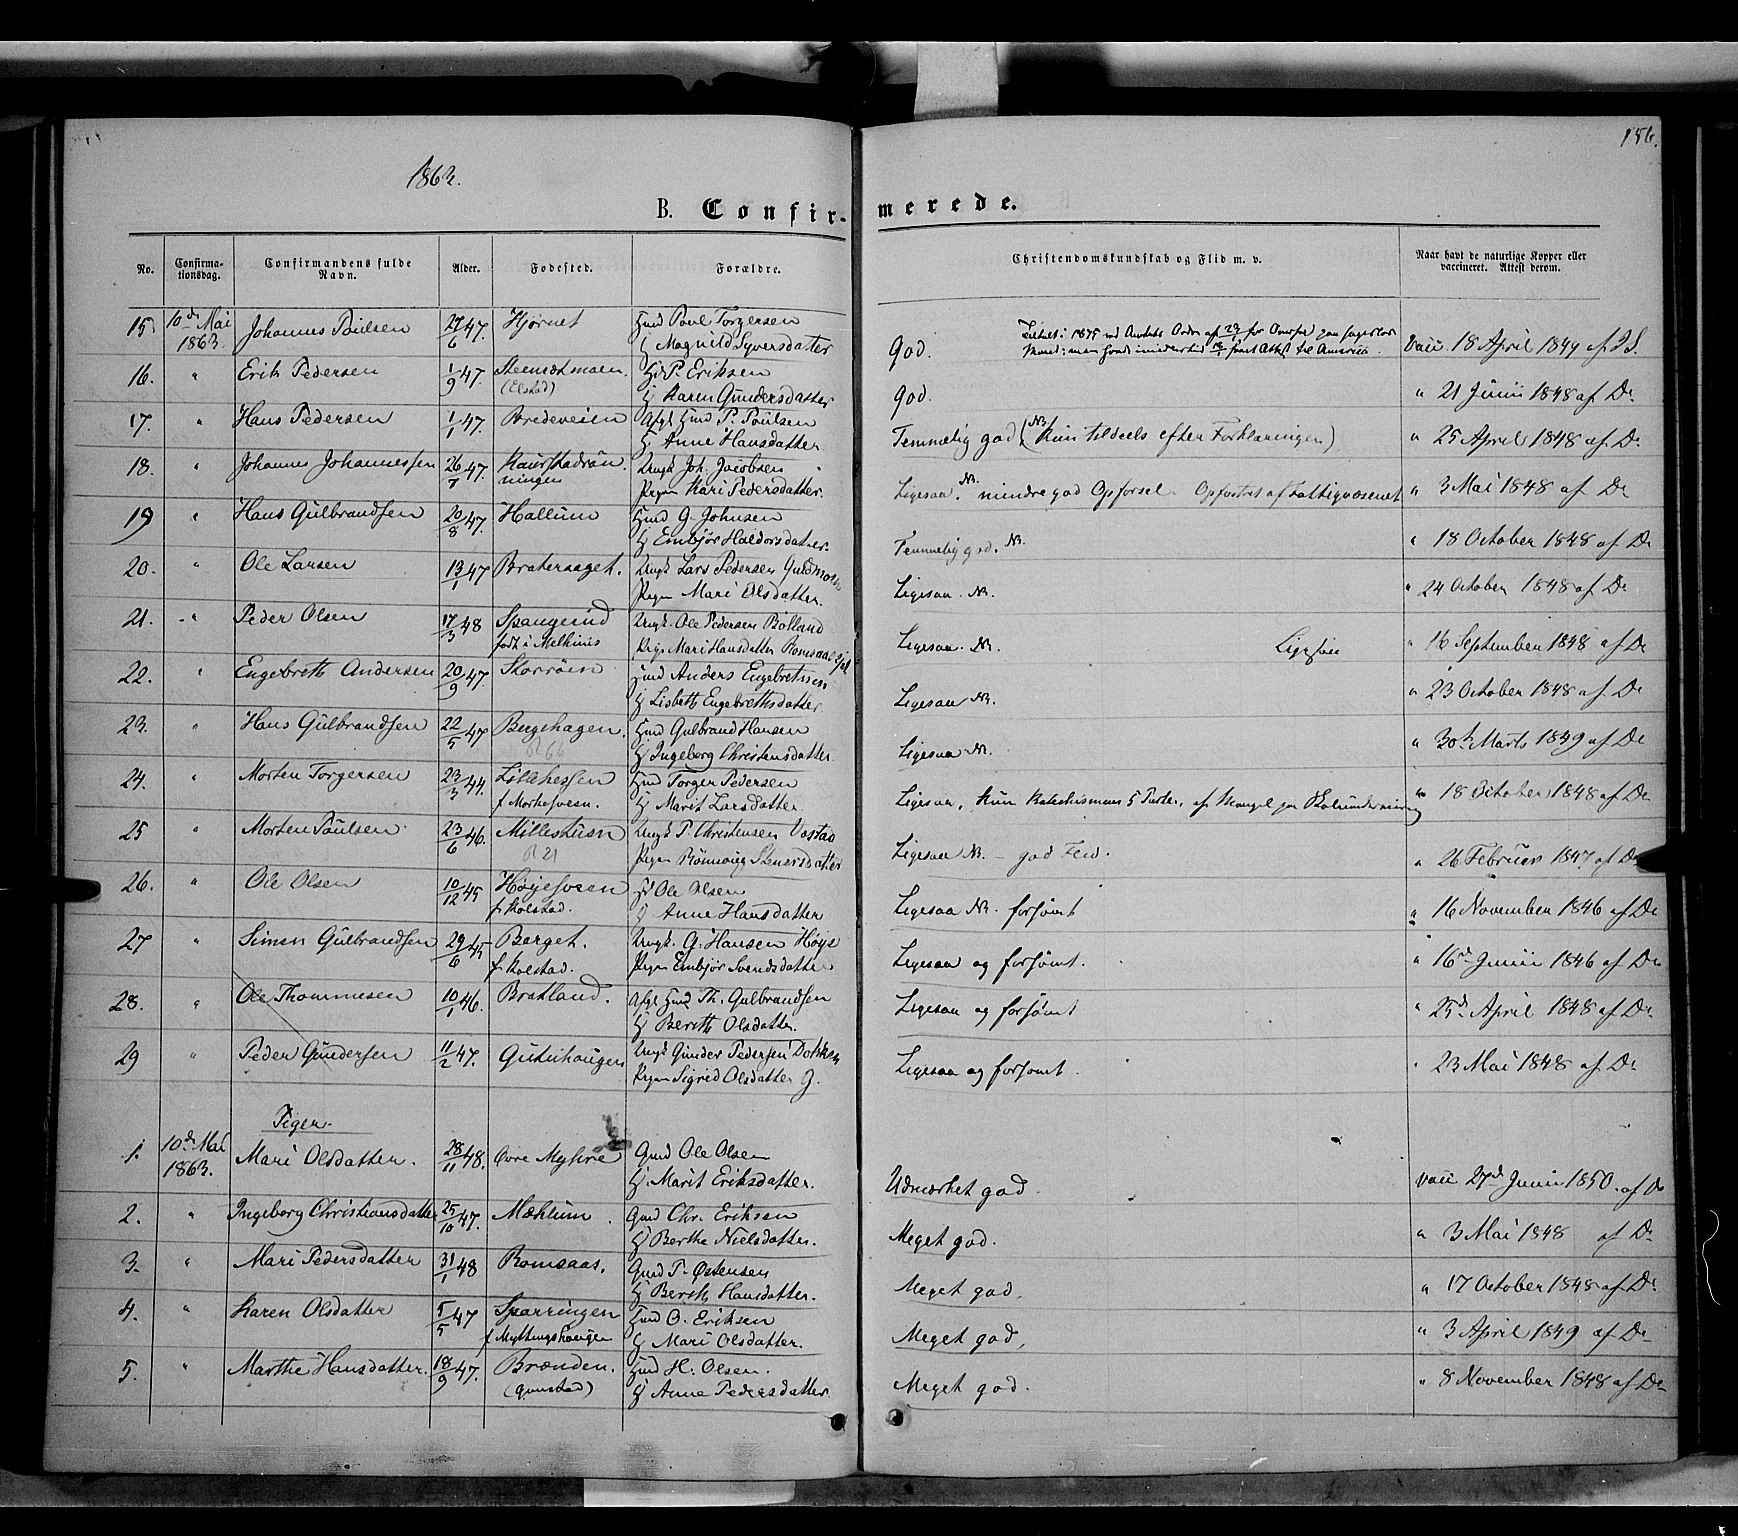 156.
1863.
B. Confirmerede.
No. Confirmationsdag. Confirmandens fulde Navn. Alder. Fødested. Forældre. Christendomskundskab og Flid m. v. Naar havt de naturlige Kopper eller vaccineret. Attest derom.
15. 10de Mai 1863. Johannes Poulsen 27/6 47. Hjørnet Huusmd Poul Torgersen
H Magnild Syversdatter God. vacc 18 April 1849 af J S.
16. " Erik Pedersen 1/9 47. (Elstad) P. Eriksen
H Karen Gundersdatter god. " 21 Junii 1848 af Do
17. " Hans Pedersen 1/1 47. Bredeveien P. Poulsen
H Anne Hansdatter Temmelig god (NB. kun tildeels efter Forklaringen) " 25 April 1848 af Do
18. " Johannes Johannessen 26/7 47. Kaurstadrønningen Ungk Joh. Jacobsen
Pigen Kari Pedersdatter. Ligesaa. NB. mindre god Opførsel. Opfostret af Fattigvæsenet " 3 Mai 1848 af Do
19 " Hans Gulbrandsen 20/8 47. Hallum G. Johnsen
H Embjør Haldorsdatter. Temmelig god. NB. " 18 October 1848 af Do
20. " Ole Larsen 13/1 47 Bratersaget. Ungk Lars Pedersen
Pigen Mari Olsdatter. Ligesaa. NB. " 24 October 1848 af Do
21. " Peder Olsen 17/3 48 Ungk. Ole Pedersen
født i Pige Mari Hansdatter Ligesaa. NB. Ligesaa " 16 September 1848 af Do
22. " Engebreth Andersen 20/9 47. Storrøen Anders Engebretsen
H Lisbeth Engebrethsdatter Ligesaa NB. " 23 October 1848 af Do
23. " Hans Gulbrandsen 22/5 47 Bugshagen. Gulbrand Hansen
H Ingeborg Christensdatter Ligesaa NB. " 30te Marts 1849 af Do
24. " Morten Torgersen 23/3 44. Torger Pedersen
H Marit Larsdatter Ligesaa, kun Katechismens 5 Parter, af Mangel paa " 18 October 1848 af Do
25 " Morten Poulsen. 23/6 46. Millestuen Ungk P. Christensen
21 Pigen Rønnaug Stenersdatter Ligesaa NB. – god Flid. " 26 Februar 1847 af Do
26. " Ole Olsen 10/12 45 Høyesveen Ole Olsen
f. Kolstad. H Anne Hansdatter Ligesaa NB. forsømt " 16 November 1846 af Do
27 " Simen Gulbrandsen 29/6 45 Berget. Ungk. G. Hansen
f. Kolstad. Pigen Embjør Svendsdatter Ligesaa og forsømt. " 16de Junii 1846 af Do
28. " Ole Thommesen 10/1 46. Bratland. Th. Gulbrandsen
H Berith Olsdatter. Ligesaa og forsømt " 25de April 1848 af Do
29 " Peder Gundersen 11/2 47. Gutuhaugen Ungk Gunder Pedersen
Pigen Sigrid Olsdatter Ligesaa og forsømt. " 23 Mai 1848 af Do
Piger.
1. 10de Mai 1863. Mari Olsdatter. 28/11 48. Øvre Myhre Gmd Ole Olsen
H. Marit Eriksdatter. Udmærket god. vacc 27de Junii 1850. af Do
2. " Ingeborg Christiansdatter 25/10 47. Mæhlum. Gmd Chr. Eriksen
H Berthe Nielsdatter. Meget god. " 3 Mai 1848 af Do
3. " Mari Pedersdatter 31/1 48 Romsaas. Gmd P. Østensen
H Berith Hansdatter. Meget god. " 17 October 1848 af Do
4. " Karen Olsdatter 5/5 47 Sparringen O. Eriksen
f H Mari Olsdatter. Meget god, " 3 April 1849 af Do
5. " Marthe Hansdatter. 18/9 47. Brænden. H. Olsen.
(Gunstad) H Anne Pedersdatter Meget god. " 8 November 1848 af Do